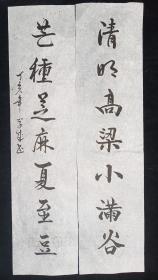 清明高梁小满谷
芒種芝麻夏至豆
丁亥年